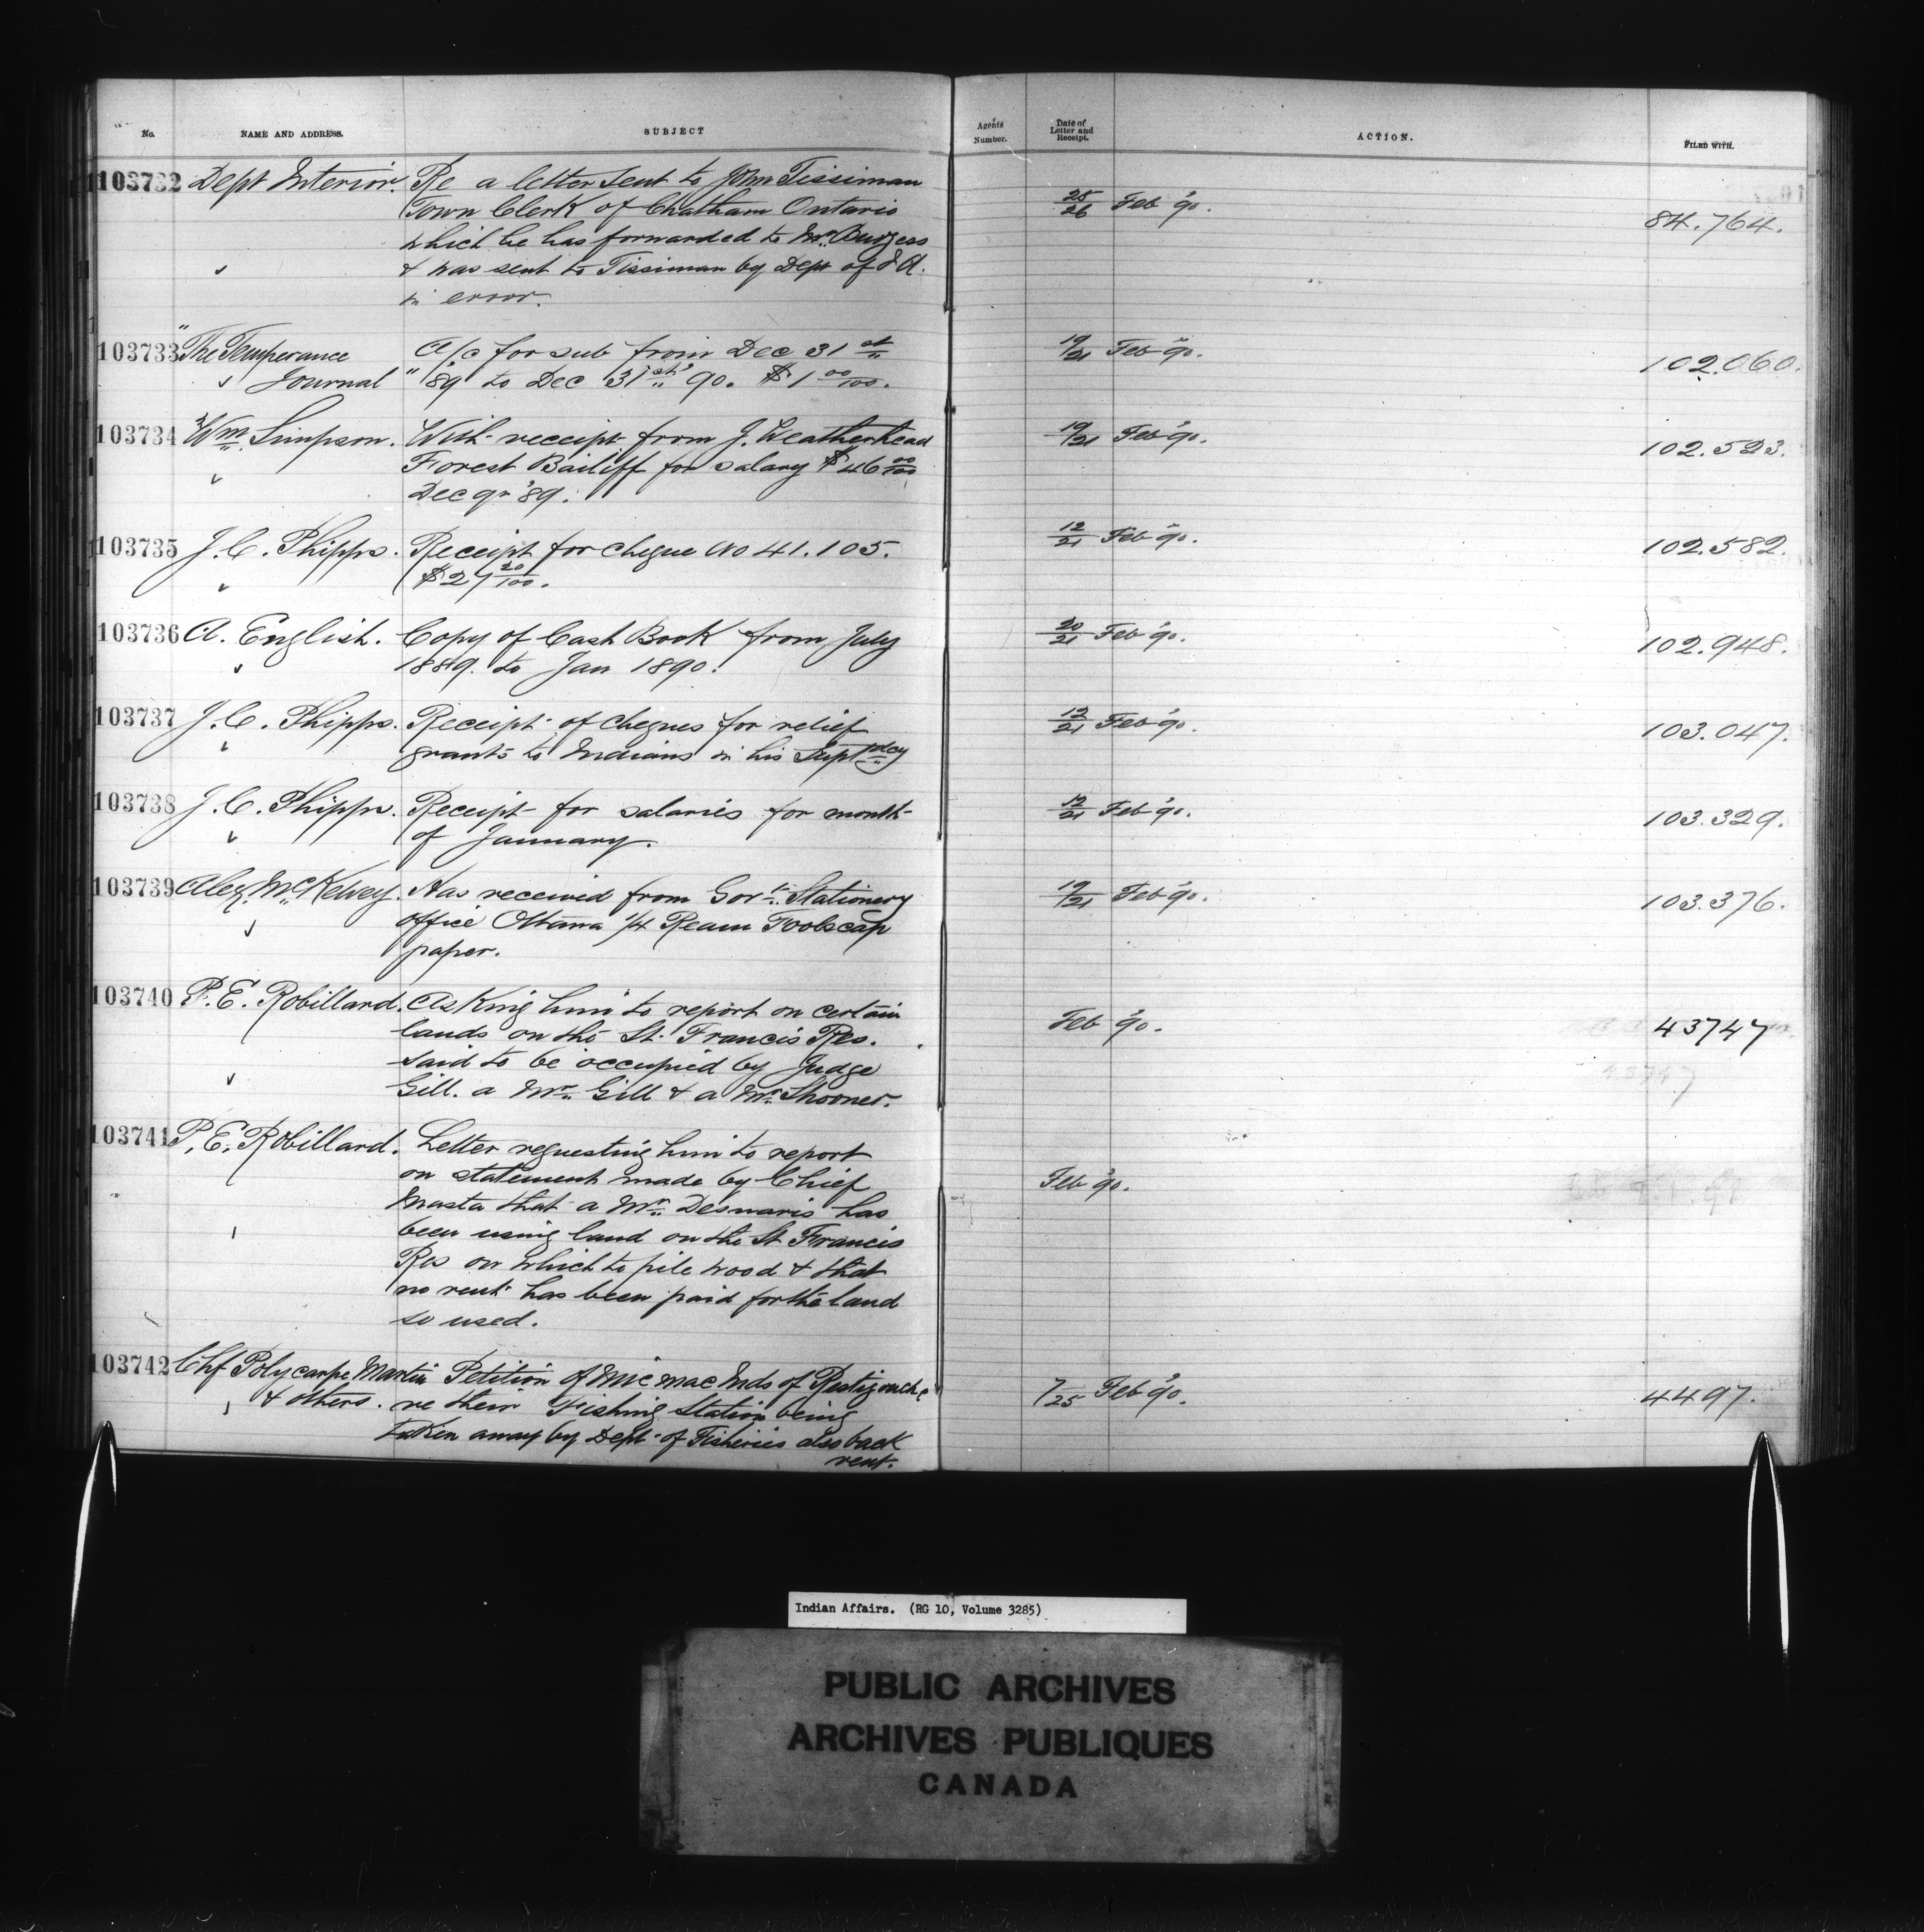 No. NAME AND ADDRESS. SUBJECT Agents Number. Date of Letter and Receipt. ACTION. FILED WITH.
103732 Dept Interior. Re a letter sent to John Tissiman 25/26 Feb '90. 84.764.
Town Clerk of Chatham Ontario
which he has forwarded to Mr. Burgess
& was sent to Tissiman by Dept of I A.
in error.
103733 The Temperance A/c for sub from Dec 31st 19/21 Feb '90. 102.060.
Journal " '89 to Dec 31st '90. $1 00/100.
103734 Wm. Simpson. With receipt from J. Weatherhead 19/21 Feb '90. 102.523.
Forest Bailiff for salary $46 00/100
Dec qr '89.
103735 J. C. Phipps. Receipt for cheque No 41.105. 12/21 Feb '90. 102.582.
$27 20/100.
103736 A. English. Copy of Cash Book from July 20/21 Feb '90. 102.948.
1889. to Jan 1890.
103737 J. C. Phipps. Receipt of cheques for relief 12/21 Feb '90. 103.047.
grants to Indians in his Suptdcy
103738 J. C. Phipps. Receipt for salaries for month 12/21 Feb '90. 103.329.
of January.
103739 Alex. McKelvey. Has received from Govt. Stationery 19/21 Feb '90. 103.376.
office Ottawa 1/4 Ream Foolscap
paper.
103740 P. E. Robillard. Asking him to report on certain
lands on the St. Francis Res. Feb '90. 43747
said to be occupied by Judge
Gill. a Mr. Gill & a Mr. Shooner.
103741 P. E. Robillard. Letter requesting him to report
on statement made by Chief Feb '90.
Masta that a Mr. Desmaris has
been using land on the St Francis
Res on which to pile wood & that
no rent has been paid for the land
so used.
103742 Chf Polycarpe Martin Petition of Micmac Inds of Restigouche 7/25 Feb '90. 4497.
& others. re their Fishing Station being
taken away by Dept of Fisheries also back
rent.
Indian Affairs. (RG 10, Volume 3285)
PUBLIC ARCHIVES
ARCHIVES PUBLIQUES
CANADA